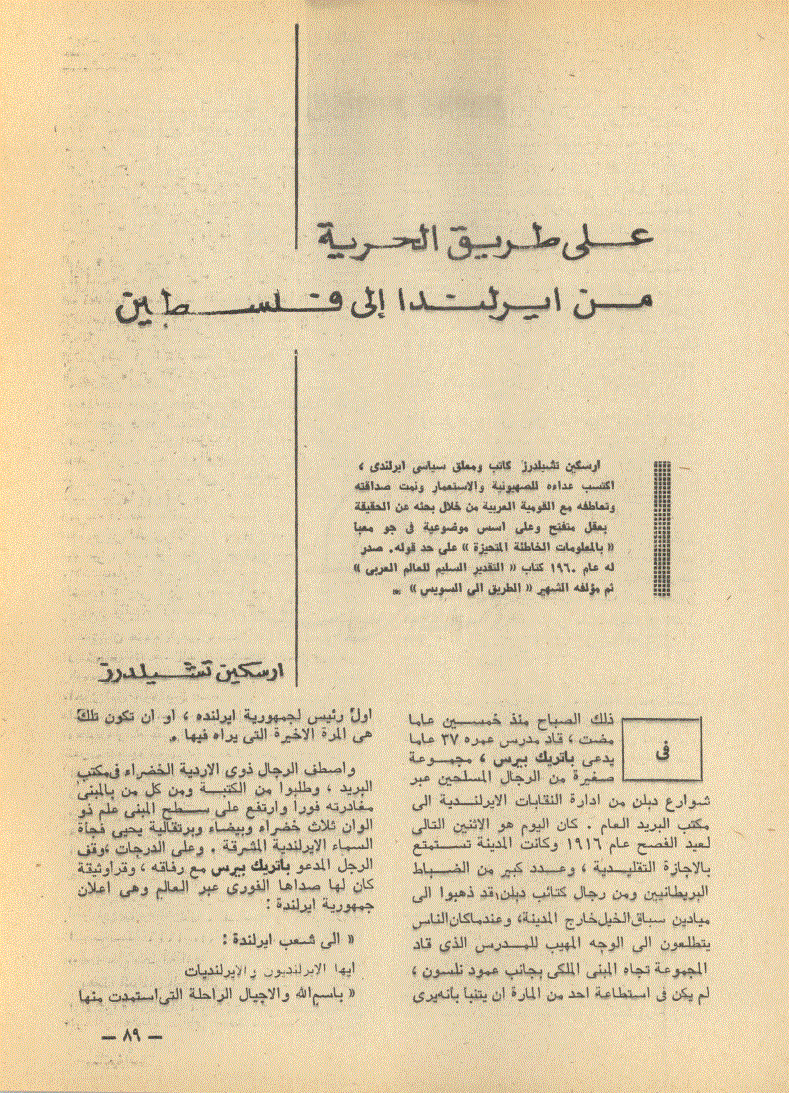 على طريق الحرية
من ايرلندا إلى فلسطين
ارسكين تشيلدرز كاتب ومعلق سياسى ايرلندى ،
اكتسب عداءه للصهيونية والاستعمار ونمت صداقته
وتعاطفه مع القومية العربية من خلال بحثه عن الحقيقة
بعقل منفتح وعلى اسس موضوعية فى جو معبا
« بالمعلومات الخاطئة المتحيزة » على حد قوله. صدر
له عام ١٩٦٠ كتاب « التقدير السليم للعالم العربى »
ثم مؤلفه الشهير « الطريق الى السويس » *
ارسكين تشيلدرز
فى
ذلك الصباح منذ خمسين عاما
مضت ، قاد مدرس عمره ٣٧ عاما
يدعى باتريك بيرس ، مجموعة
صغيرة من الرجال المسلحين عبر
شوارع دبلن من ادارة النقابات الايرلندية الى
مكتب البريد العام . كان اليوم هو الاثنين التالى
لعيد الفصح عام ١٩١٦ وكانت المدينة تستمتع
بالاجازة التقليدية ، وعدد كبير من الضباط
البريطانيين ومن رجال كتائب دبلن قد ذهبوا الى
ميادين سباق الخيل خارج المدينة، وعندما كان الناس
يتطلعون الى الوجه المهيب للمدرس الذى قاد
المجموعة تجاه المبنى الملكى بجانب عمود نلسون ،
لم يكن فى استطاعة احد من المارة ان يتنبا بانه يرى
اول رئيس لجمهورية ايرلنده ، او ان تكون تلك
هى المرة الاخيرة التى يراه فيها .
واصطف الرجال ذوى الاردية الخضراء فى مكتب
البريد ، وطلبوا من الكتبة ومن كل من بالمبنى
مغادرته فورا وارتفع على سطح المبنى علم ذو
الوان ثلاث خضراء وبيضاء وبرتقالية يحيى فجأة
السماء الايرلندية المشرقة . وعلى الدرجات ، وقف
الرجل المدعو باتريك بيرس مع رفاقه ، وقرا وثيقة
كان لها صداها الفورى عبر العالم وهى اعلان
جمهورية ايرلندة :
« الى شعب ايرلندة :
ايها الايرلنديون والايرلنديات
« باسم الله والاجيال الراحلة التى استمدت منها
— ٨٩ —